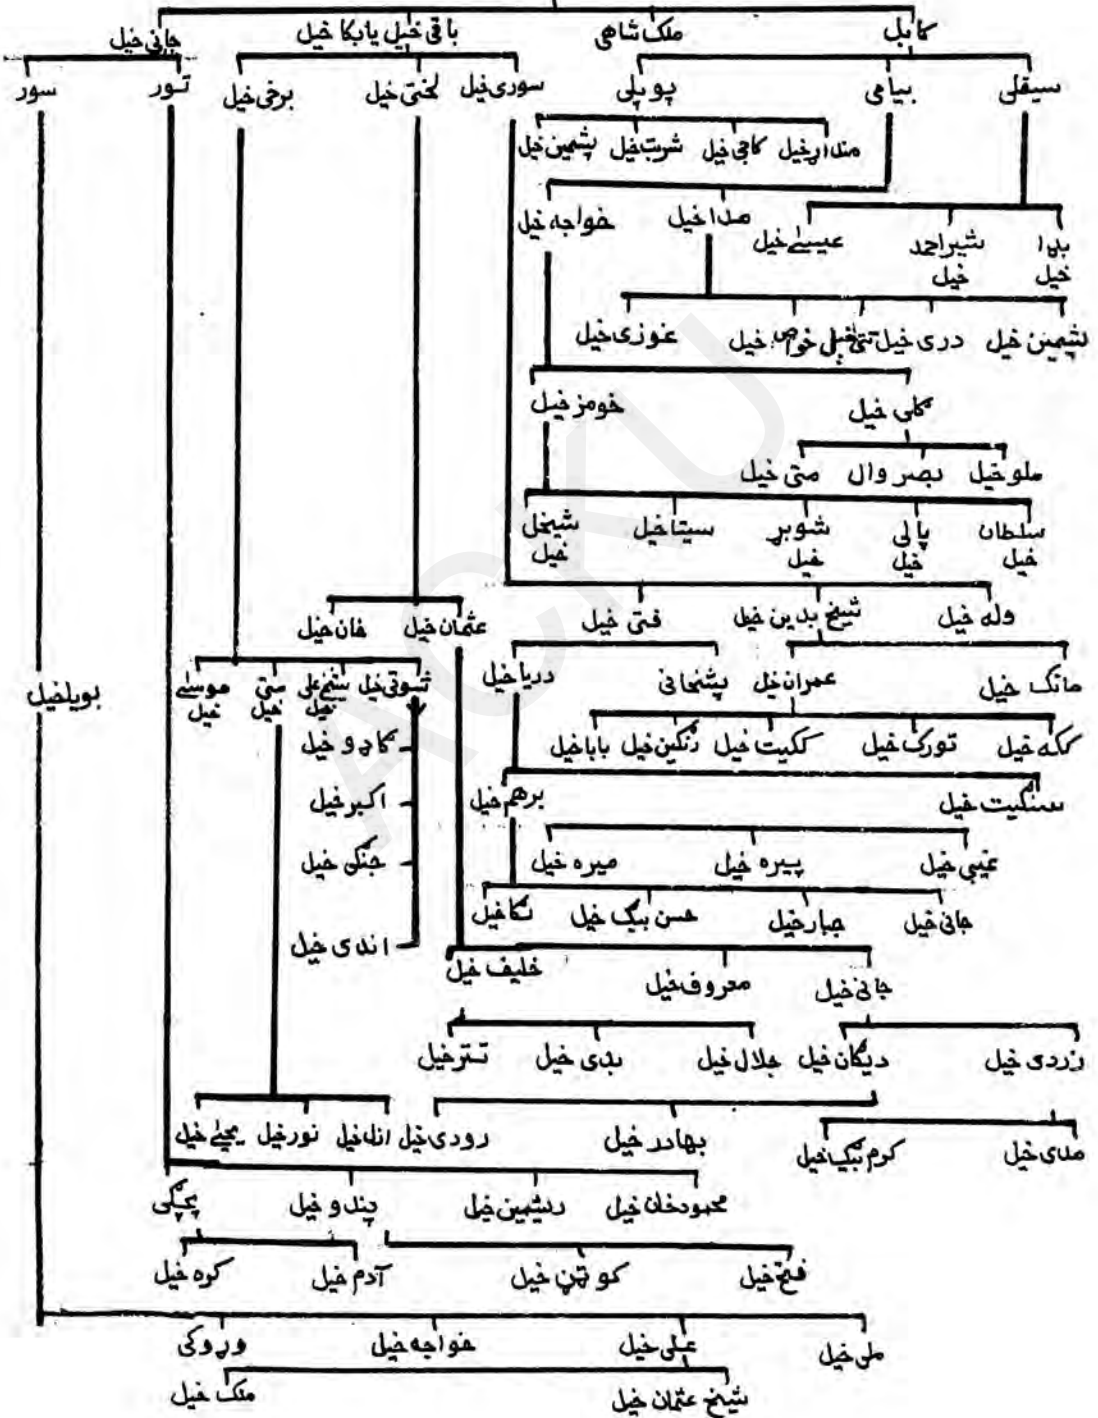 کابل ملک شاهی باقی خیل یا بکا خیل جانی خیل
سیقلی بیامی پوپلی سوری خیل لختی خیل برخی خیل تور سور
مندار خیل کاجی خیل شربت خیل پشمین خیل
مدا خیل خواجه خیل
بډا خیل شیر احمد خیل عیسیٰ خیل
پشمین خیل دری خیل خیل غوزی خیل
کلی خیل خومز خیل
ملو خیل بصر وال متی خیل
سلطان خیل پالی خیل شوبړ خیل سیتا خیل شیخل خیل
وله خیل شیخ بدین خیل فتی خیل عثمان خیل خان خیل
مانک خیل عمران خیل پشنحانی دریا خیل
شوتی خیل ستی خیل موسیٰ خیل
بوبلخیل
ککه خیل تورک خیل ککیت خیل رنگین خیل بابا خیل
کادو خیل
سنگیت خیل برهم خیل
اکبر خیل
غیبی خیل پیره خیل میره خیل
جنگی خیل
جانی خیل جبار خیل حسن بیگ خیل نکا خیل
اندی خیل
جانی خیل معروف خیل خلیف خیل
زردی خیل دیگان خیل جلال خیل بدی خیل تتر خیل
مدی خیل کرم بیگ خیل بهادر خیل رودی خیل
نور خیل یحیٰی خیل
محمود خان خیل ریشمین خیل پندو خیل
فتح خیل خیل آدم خیل کوه خیل
ملی خیل علی خیل خواجه خیل وړوکی
شیخ عثمان خیل ملک خیل
ACKU